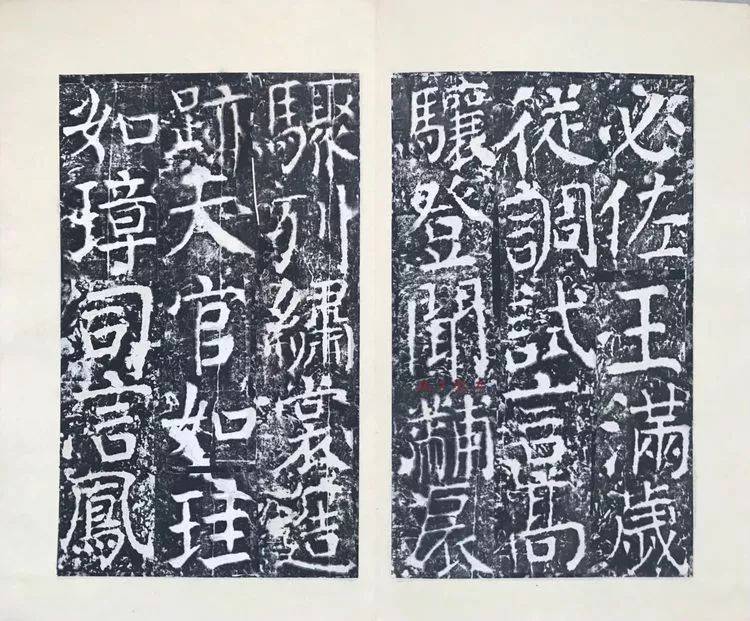 必佐王滿歲
從調試言高
驤登聞黼扆
驟列繡裳造
跡天官如珪
如璋司言鳳